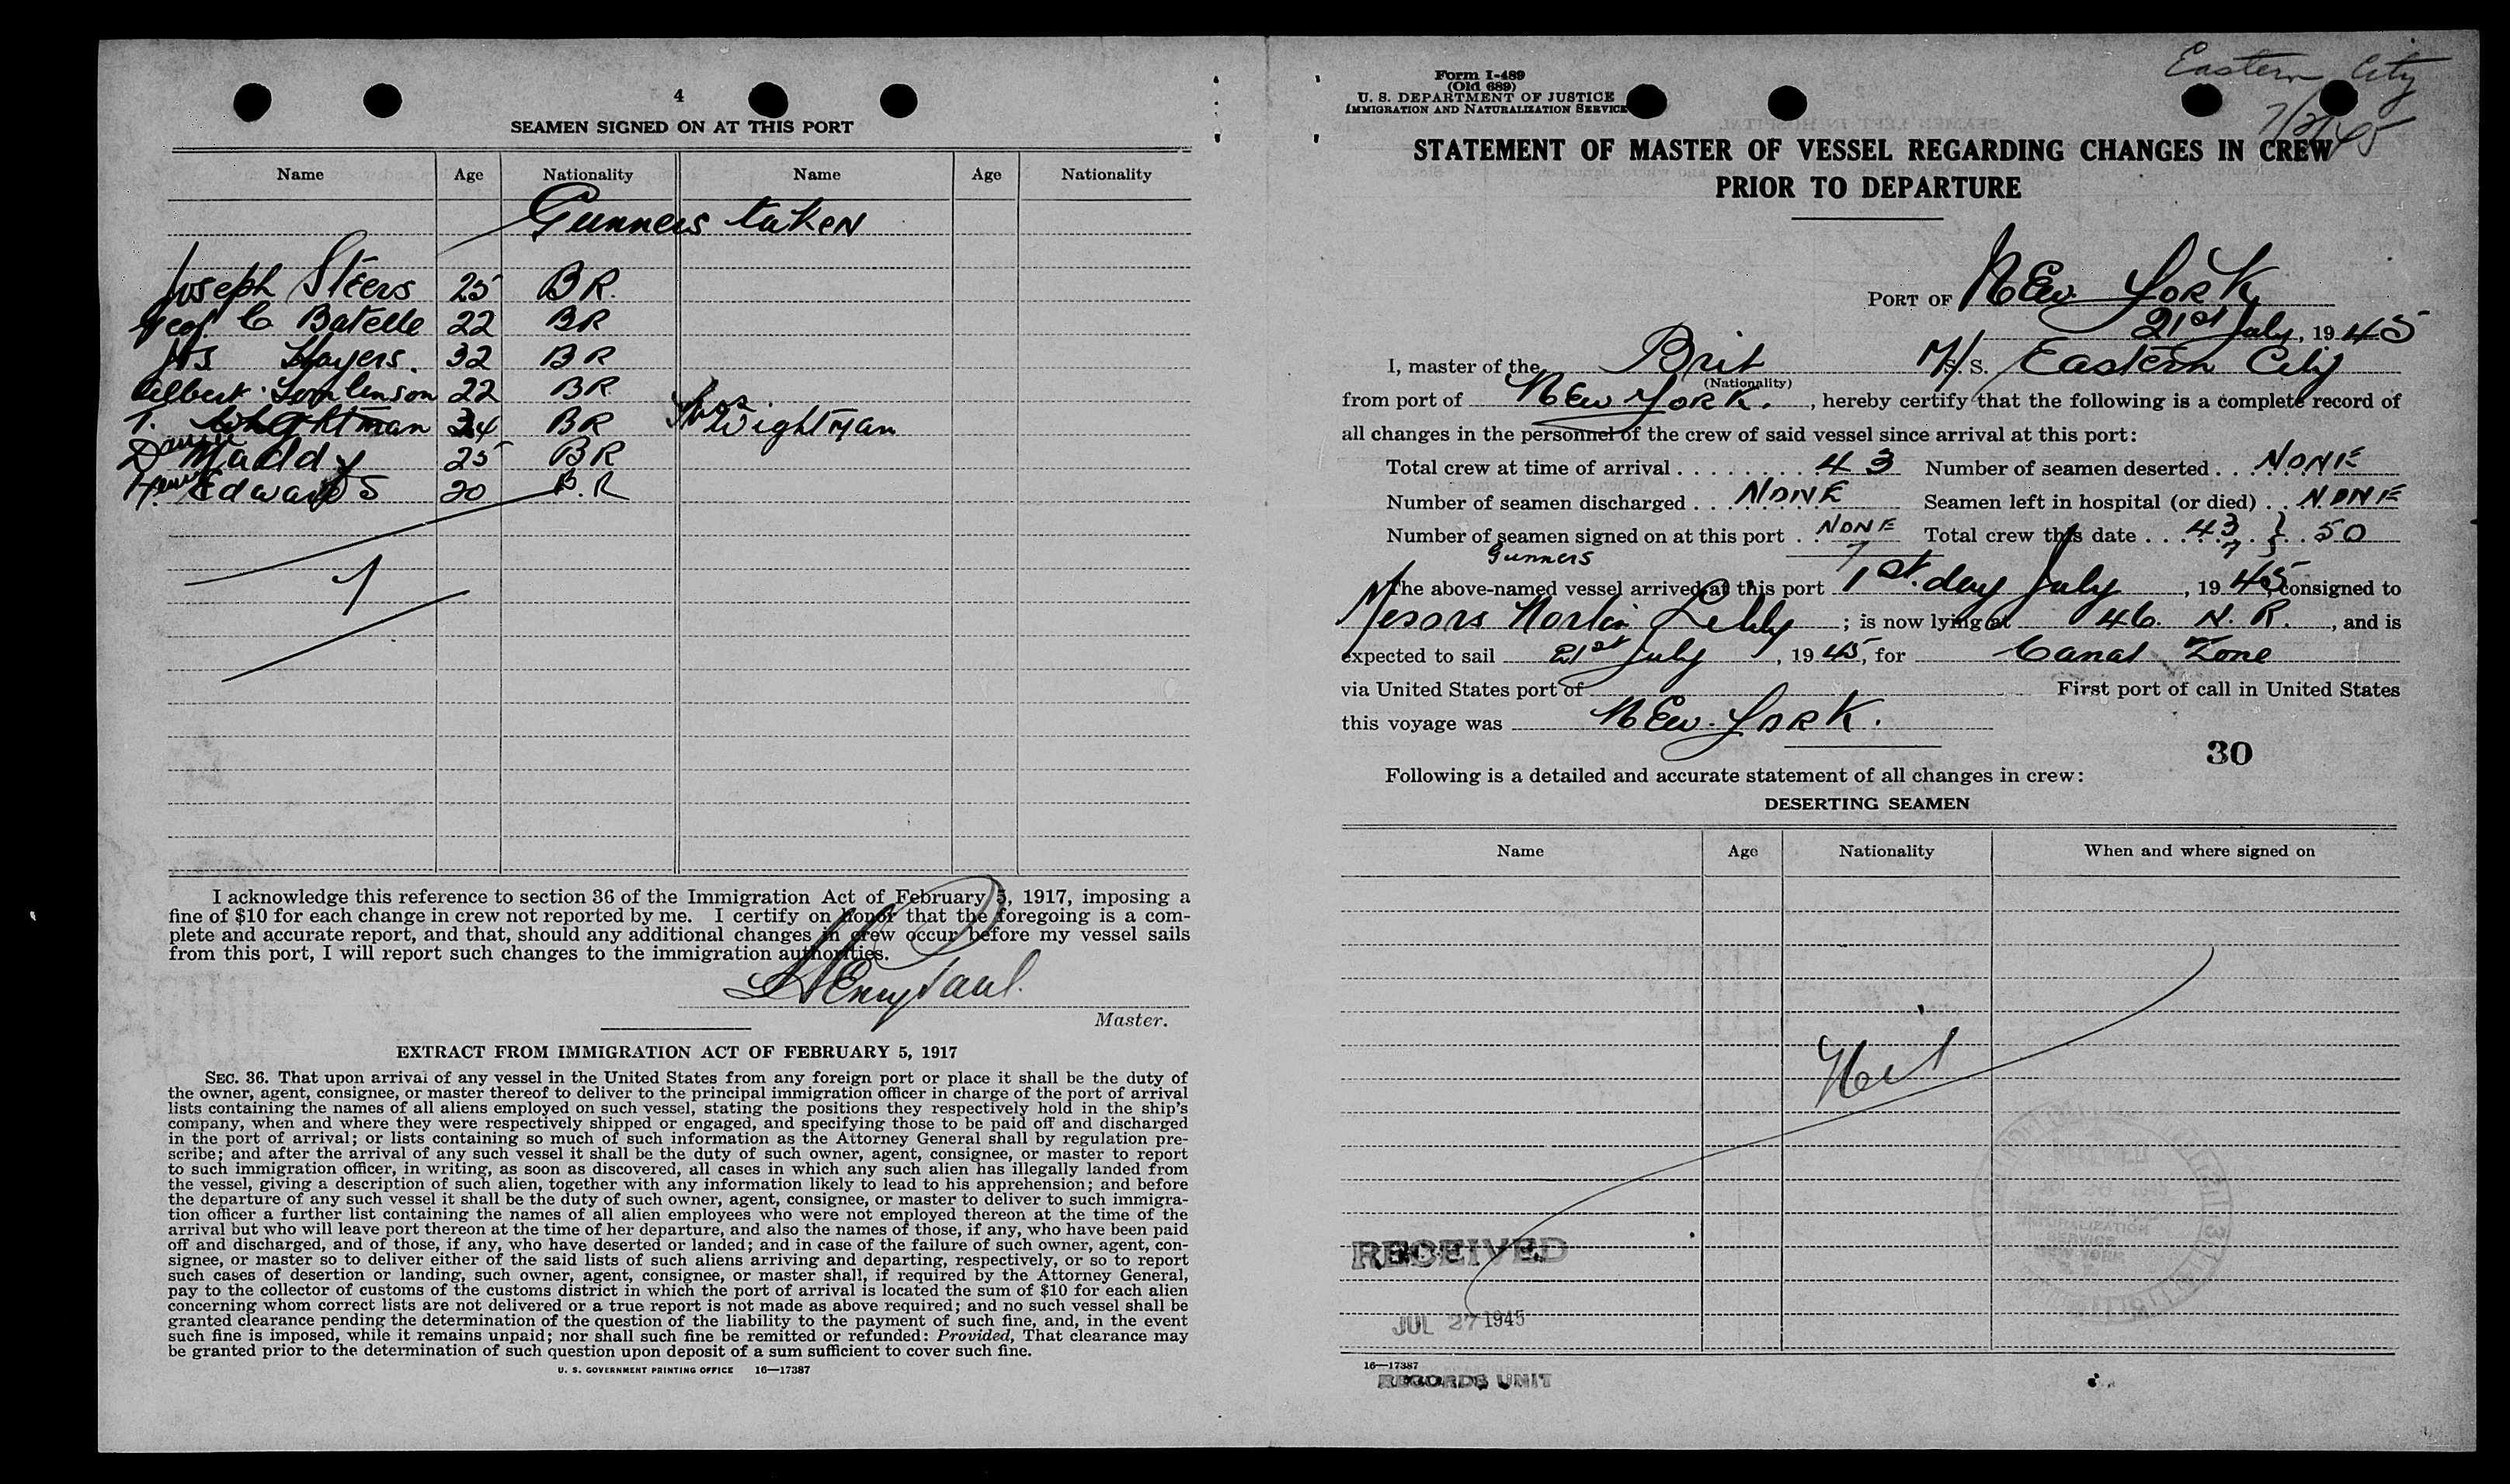 4
SEAMEN SIGNED ON AT THIS PORT
Name Age Nationality Name Age Nationality
Gunners taken
Joseph Steers 25 BR.
Geof. C Batelle 22 BR
Jas Hayers. 32 BR
Albert Tomlinson 22 BR
T. Wightman 24 BR Thos. Wightman
Daniel Maddy 25 BR
Henry Edwards 20 B.R
7
I acknowledge this reference to section 36 of the Immigration Act of February 5, 1917, imposing a
fine of $10 for each change in crew not reported by me. I certify on honor that the foregoing is a com-
plete and accurate report, and that, should any additional changes in crew occur before my vessel sails
from this port, I will report such changes to the immigration authorities.
Henry Paul.
Master.
EXTRACT FROM IMMIGRATION ACT OF FEBRUARY 5, 1917
SEC. 36. That upon arrival of any vessel in the United States from any foreign port or place it shall be the duty of
the owner, agent, consignee, or master thereof to deliver to the principal immigration officer in charge of the port of arrival
lists containing the names of all aliens employed on such vessel, stating the positions they respectively hold in the ship's
company, when and where they were respectively shipped or engaged, and specifying those to be paid off and discharged
in the port of arrival; or lists containing so much of such information as the Attorney General shall by regulation pre-
scribe; and after the arrival of any such vessel it shall be the duty of such owner, agent, consignee, or master to report
to such immigration officer, in writing, as soon as discovered, all cases in which any such alien has illegally landed from
the vessel, giving a description of such alien, together with any information likely to lead to his apprehension; and before
the departure of any such vessel it shall be the duty of such owner, agent, consignee, or master to deliver to such immigra-
tion officer a further list containing the names of all alien employees who were not employed thereon at the time of the
arrival but who will leave port thereon at the time of her departure, and also the names of those, if any, who have been paid
off and discharged, and of those, if any, who have deserted or landed; and in case of the failure of such owner, agent, con-
signee, or master so to deliver either of the said lists of such aliens arriving and departing, respectively, or so to report
such cases of desertion or landing, such owner, agent, consignee, or master shall, if required by the Attorney General,
pay to the collector of customs of the customs district in which the port of arrival is located the sum of $10 for each alien
concerning whom correct lists are not delivered or a true report is not made as above required; and no such vessel shall be
granted clearance pending the determination of the question of the liability to the payment of such fine, and, in the event
such fine is imposed, while it remains unpaid; nor shall such fine be remitted or refunded: Provided, That clearance may
be granted prior to the determination of such question upon deposit of a sum sufficient to cover such fine.
U. S. GOVERNMENT PRINTING OFFICE 16—17387
Eastern City
7/21/45
Form I-489
(Old 689)
U. S. DEPARTMENT OF JUSTICE
IMMIGRATION AND NATURALIZATION SERVICE
STATEMENT OF MASTER OF VESSEL REGARDING CHANGES IN CREW
PRIOR TO DEPARTURE
PORT OF New York
21st July, 1945
I, master of the Brit M/S. S. Eastern City
(Nationality)
from port of New York., hereby certify that the following is a complete record of
all changes in the personnel of the crew of said vessel since arrival at this port:
Total crew at time of arrival 43 Number of seamen deserted NONE
Number of seamen discharged NONE Seamen left in hospital (or died) NONE
Number of seamen signed on at this port NONE Total crew this date 43 } 50
Gunners 7 7
The above-named vessel arrived at this port 1st. day July, 1945, consigned to
Messrs Norton Lilly; is now lying at 46. N. R., and is
expected to sail 21st July, 1945, for Canal Zone
via United States port of First port of call in United States
this voyage was New York.
30
Following is a detailed and accurate statement of all changes in crew:
DESERTING SEAMEN
Name Age Nationality When and where signed on
Nil
RECEIVED
JUL 27 1945
16—17387
RECORDS UNIT